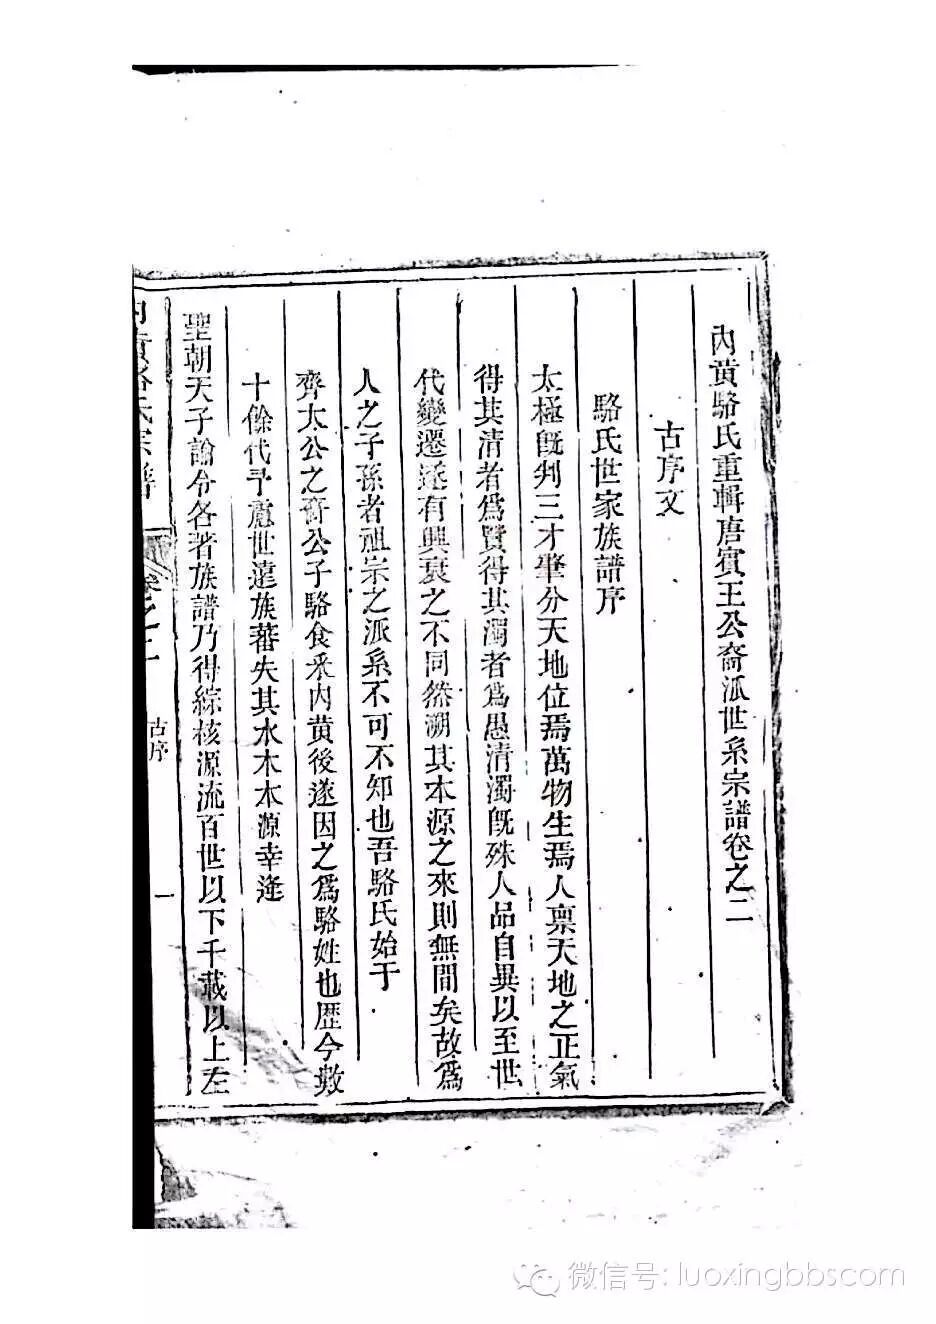 內黄駱氏重輯唐賓王公裔派世系宗譜卷之二
古序文
駱氏世家族譜序
太極旣判三才肇分天地位焉萬物生焉人禀天地之正氣
得其清者爲賢得其濁者爲愚清濁旣殊人品自異以至世
代變遷遂有興衰之不同然溯其本源之來則無間矣故爲
人之子孫者祖宗之派系不可不知也吾駱氏始于
齊太公之裔公子駱食采內黄後遂因之爲駱姓也歷今數
十餘代予慮世遠族蕃失其水木本源幸逢
聖朝天子諭令各著族譜乃得綜核源流百世以下千載以上左
內黄駱氏宗譜 卷之二 古序 一
微信号: luoxingbbscom